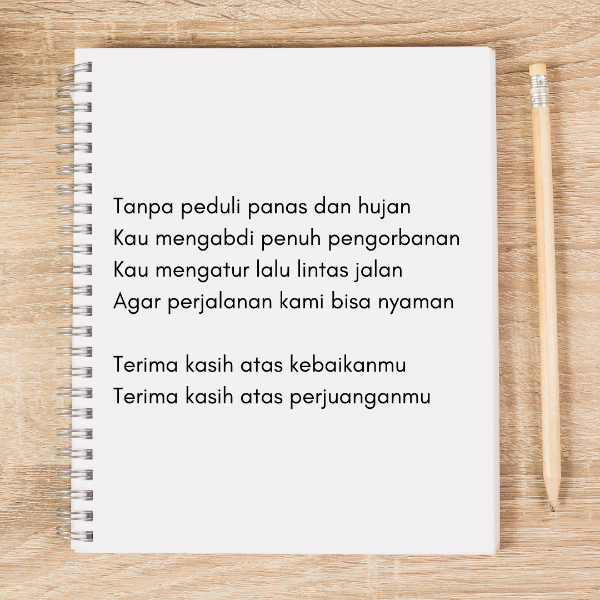 Tanpa peduli panas dan hujan
Kau mengabdi penuh pengorbanan
Kau mengatur lalu lintas jalan
Agar perjalanan kami bisa nyaman

Terima kasih atas kebaikanmu
Terima kasih atas perjuanganmu